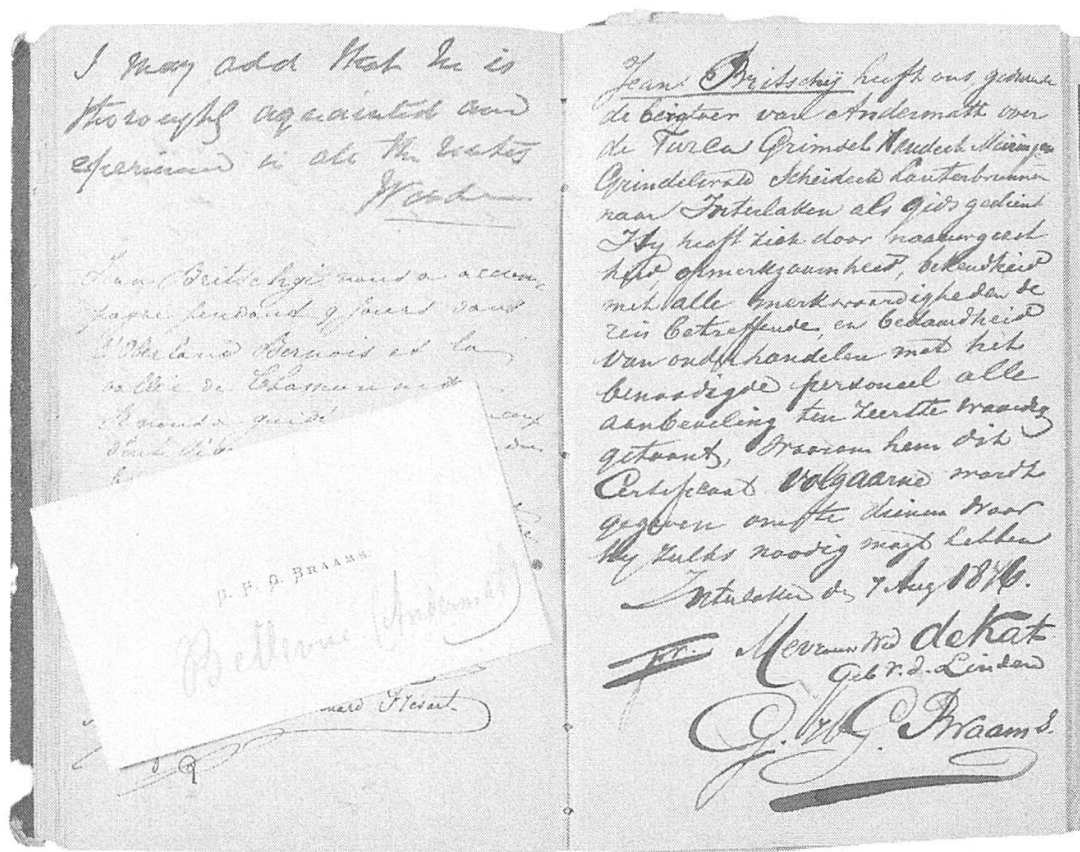 I may add that he is
thoroughly aquainted and
in all the
Jean Britschgi nous a accom,
pagné pendant 9 jours dans
l'Oberland Bernois et la
vallée de Chamounix
nous a guidé
G. BRAAMS.
Bellevue (Andermat)
Jean Britschÿ heeft ons gedurende
de bergtoer van Andermatt over
de Furca Grimsel Handeck Meiringen
Grindelwald Scheideck Lauterbrunnen
naar Interlaken als gids gedient
Hy heeft zich door naauwgezet
heid, opmerkzaamheid, bekendheid
met alle merkwaardigheden de
reis betreffende, en bedaardheid
van onderhandelen met het
benoodigde personeel alle
aanbeveling ten zeerste waardig
getoont, waarom hem dit
Certificaat volgaarne wordt
gegeven om te dienen waar
hy zulks noodig mogt hebben
Interlaken den 7 Aug 1876.
Mevrouw Wed de Kat
Geb v. d. Linden
G. Braams.